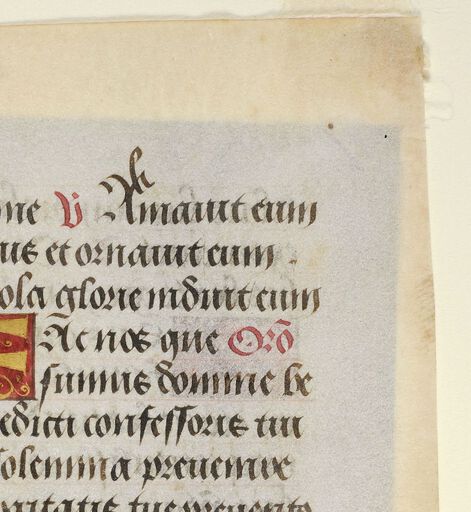 ne V Amavit eum
us et ornavit eum .
ola glorie induit eum
FAc nos que Orō
sumus domine be
edicti confessoris tui
solemnia prevenire